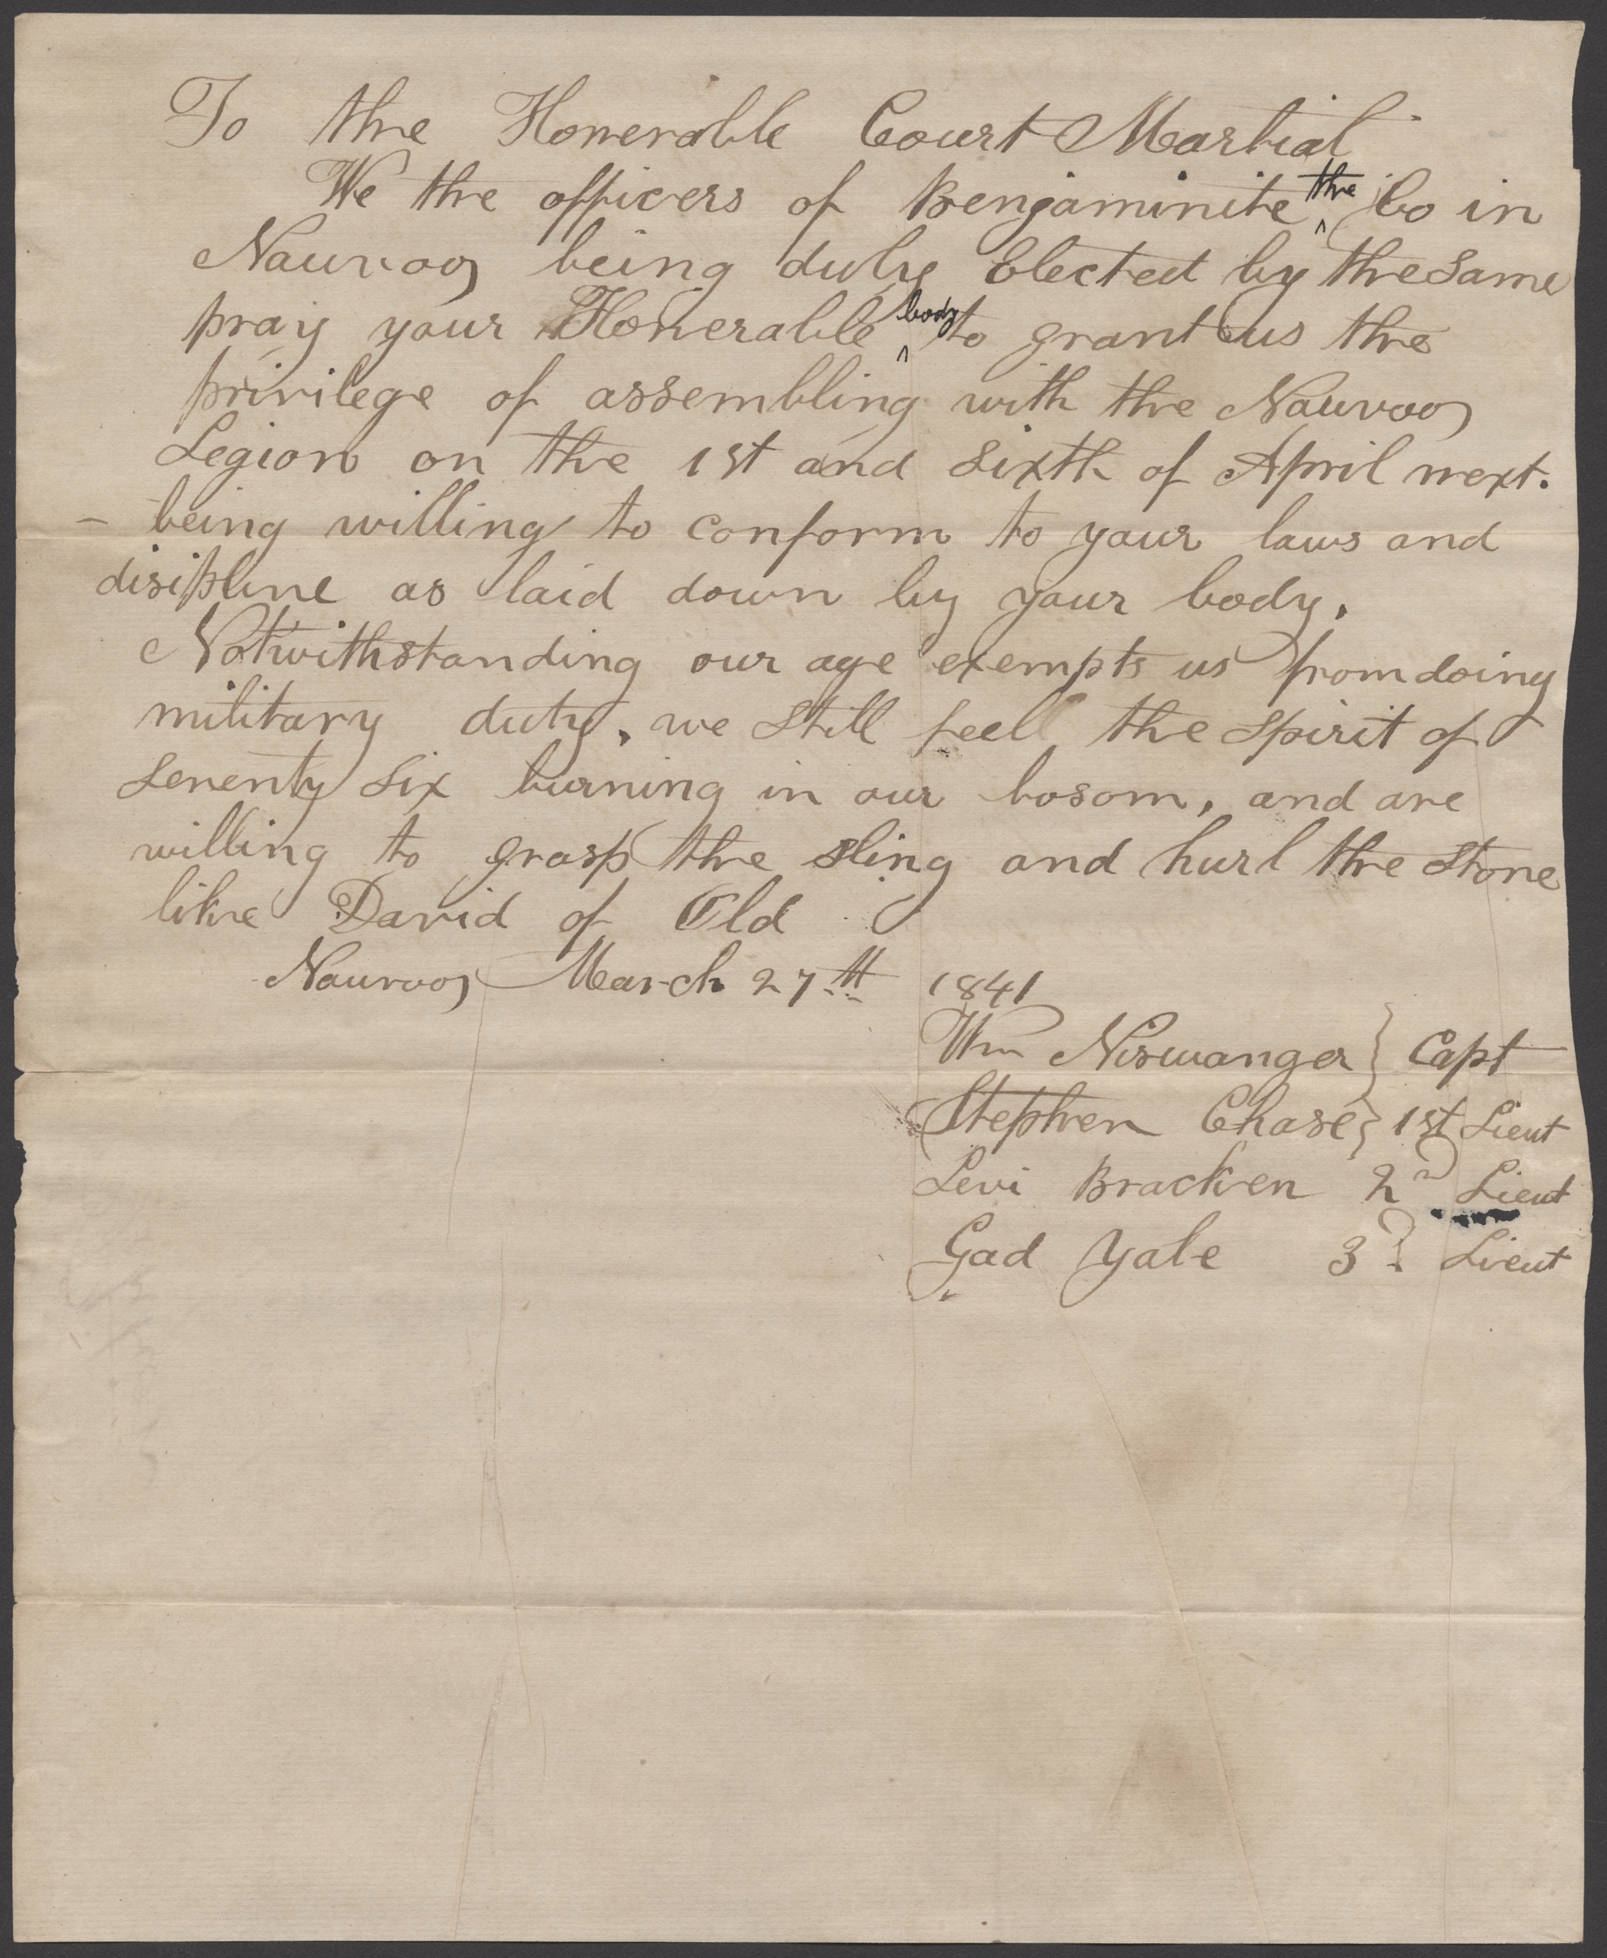 To the Honerable Court Martial
We the officers of Benjaminite the Co in
Nauvoo being duly Elected by the same
pray your Honerable body to grant us the
privilege of assembling with the Nauvoo
Legion on the 1st and sixth of April next.
- being willing to conform to your laws and
disipline as laid down by your body.
Notwithstanding our age exempts us from doing
military duty, we still feel the spirit of
seventy six burning in our bosom, and are
willing to grasp the sling and hurl the stone
like David of Old
Nauvoo March 27th 1841
Wm Niswanger } Capt
Stephen Chase } 1st Lieut
Levi Bracken 2d Lieut
Gad Yale 3d Lieut